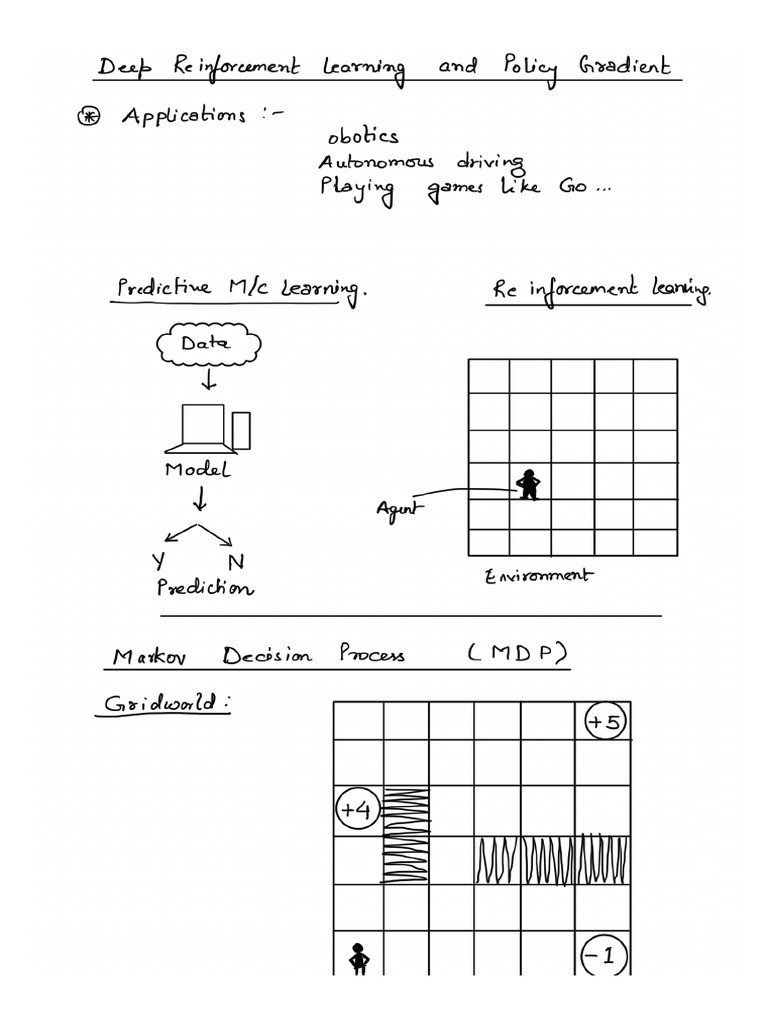 Deep Reinforcement Learning and Policy Gradient
* Applications :-
obotics
Autonomous driving
Playing games like Go ...
Predictive M/c Learning.
Reinforcement learning.
Data
Model
Y N
Prediction
Agent
Environment
Markov Decision Process (MDP)
Gridworld :
+5
+4
-1